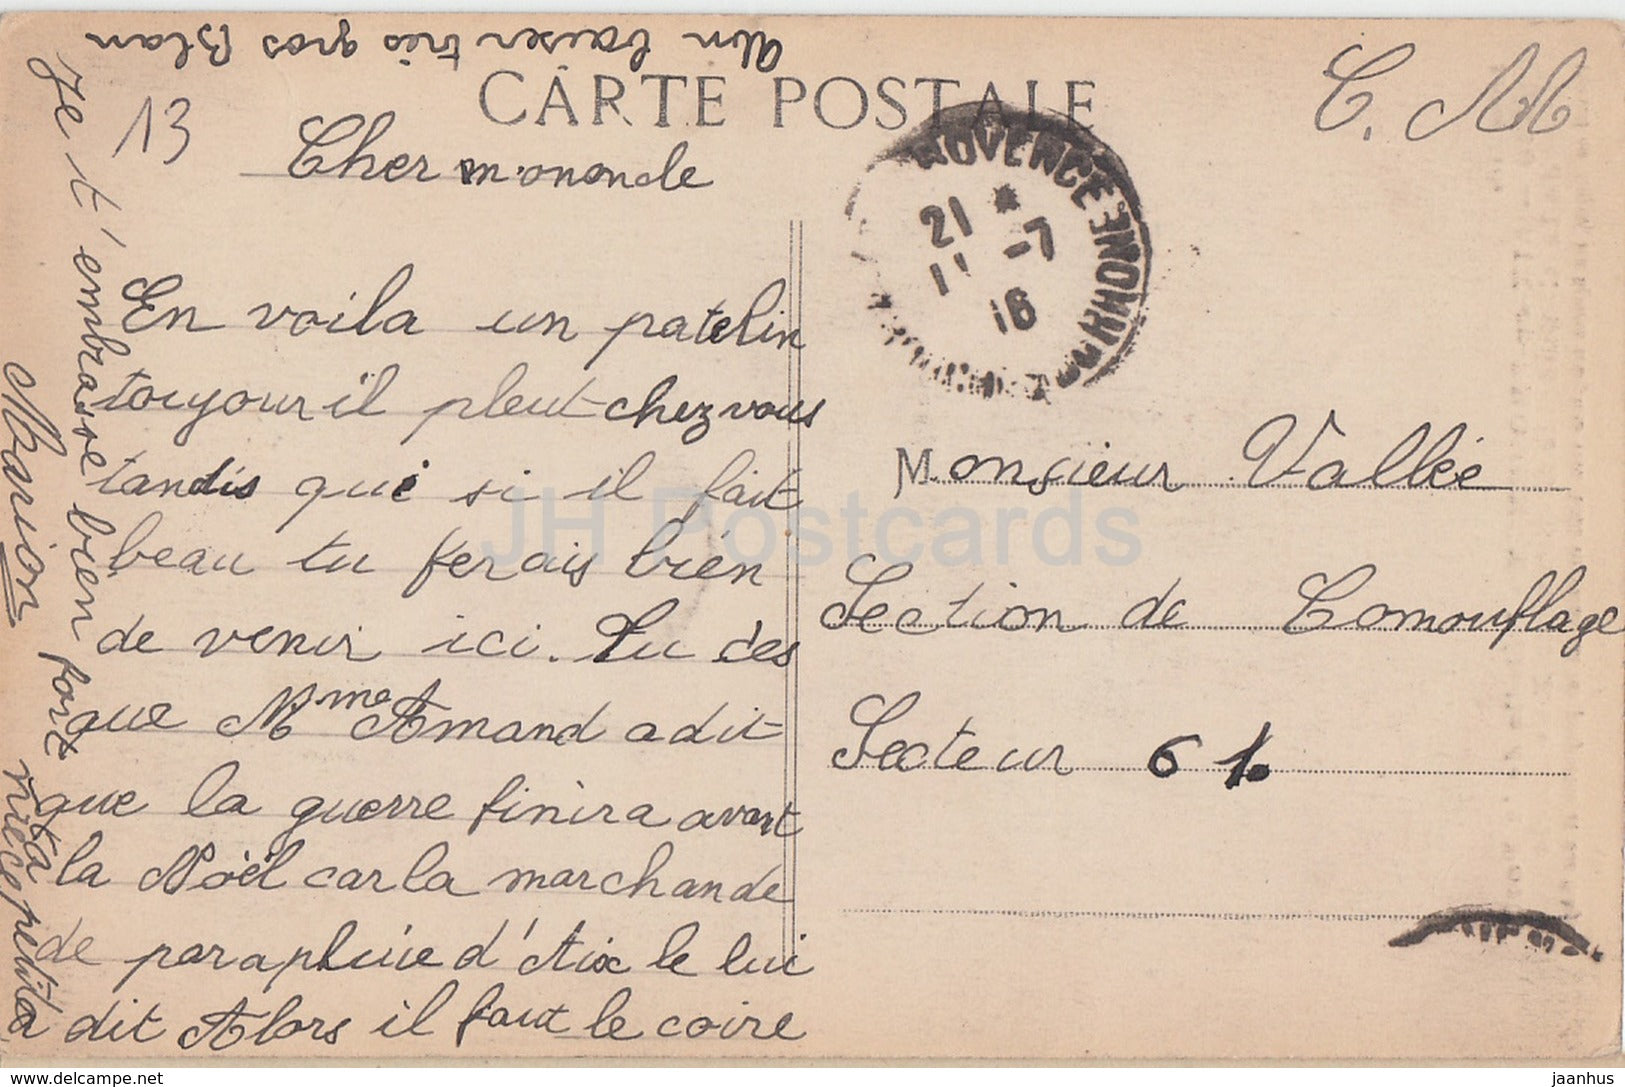 Un baiser très gros Blan
CARTE POSTALE
C. M
13
Cher
En voila un patelin
toujour il pleut chez vous
tandis que si il fait
beau tu ferais bien
de venir ici. Tu ses
que Mme Amand a dit
que la guerre finira avant
la Nöel car la marchande
de parapluie d'Aix le lui
a dit Alors il faut le coire
Je t'embrasse bien fort
ta nièce petite
Marion
PROVENCE
21 * -7
11 16
B. DU RHONE
Monsieur Vallée
Section de Comouflage
Secteur 61.
JH Postcards
https://www.jhpostcards.com
jaanhus